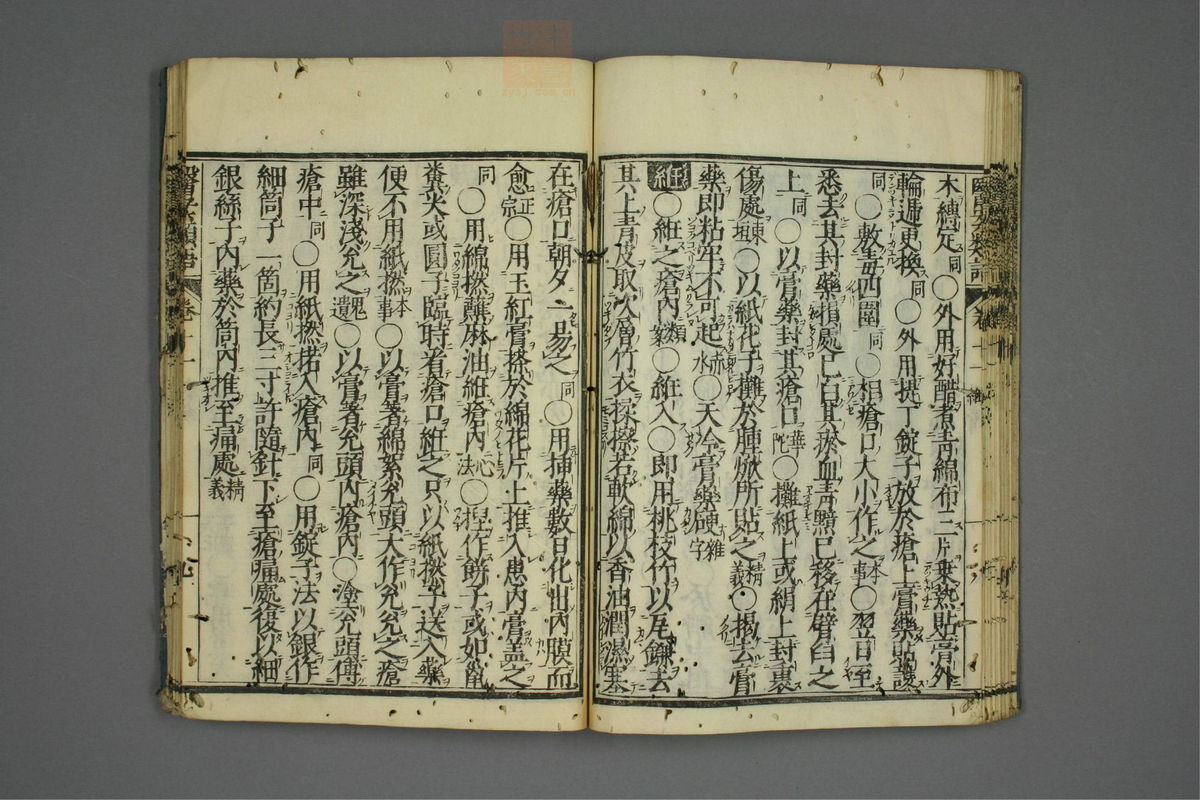 木縳定同○外用好醋煮青綿布二片乗熱貼膏外
輪遞更換同○外用提丁錠子放於瘡上膏藥貼護
同○敷毒四圍同○相瘡口大小作之本事○翌日至
悉去其封藥損處已白其瘀血青黯已移在臂臼之
上同○以膏藥封其瘡口華陀○攤紙上或絹上封裹
傷處東垣○以紙花子攤於腫焮所貼之精義○揭去膏
藥即粘牢不可起赤水○天冷膏藥硬雜字
紝○紝之瘡內類案○紝入○即用桃枝竹以瓦鎌去
其上青皮取次層竹衣揉擦若軟綿以香油潤濕塞
在瘡口朝夕二易之同○用揷藥數日化出內膜而
愈正宗○用玉紅膏搽於綿花片上推入患內膏盖之
同○用綿撚蘸麻油紝瘡內心法○捏作餅子或如鼠
糞尖或圓子臨時看瘡口紝之只以紙撚子送入藥
便不用紙撚本事○以膏著綿絮兊頭大作兊兊之瘡
雖深淺兊之鬼遺○以膏著兊頭內瘡內○塗兊頭傅
瘡中同○用紙撚㨋入瘡內同○用錠子法以銀作
細筒子一箇約長三寸許隨針下至瘡痛處復以細
銀絲子內藥於筒內推至痛處精義